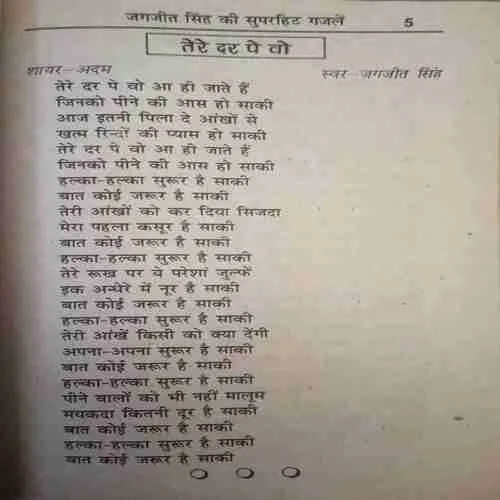 जगजीत सिंह की सुपरहिट गजलें 5
तेरे दर पे वो
शायर–अदम स्वर–जगजीत सिंह
तेरे दर पे वो आ ही जाते हैं
जिनको पीने की आस हो साकी
आज इतनी पिला दे आंखों से
खत्म रिन्दों की प्यास हो साकी
तेरे दर पे वो आ ही जाते हैं
जिनको पीने की आस हो साकी
हल्का-हल्का सुरूर है साकी
बात कोई जरूर है साकी
तेरी आंखों को कर दिया सिजदा
मेरा पहला कसूर है साकी
बात कोई जरूर है साकी
हल्का-हल्का सुरूर है साकी
तेरे रूख पर ये परेशां जुल्फें
इक अन्धेरे में नूर है साकी
बात कोई जरूर है साकी
हल्का-हल्का सुरूर है साकी
तेरी आंखें किसी को क्या देंगी
अपना-अपना सुरूर है साकी
बात कोई जरूर है साकी
हल्का-हल्का सुरूर है साकी
पीने वालों को भी नहीं मालूम
मयकदा कितनी दूर है साकी
बात कोई जरूर है साकी
हल्का-हल्का सुरूर है साकी
बात कोई जरूर है साकी